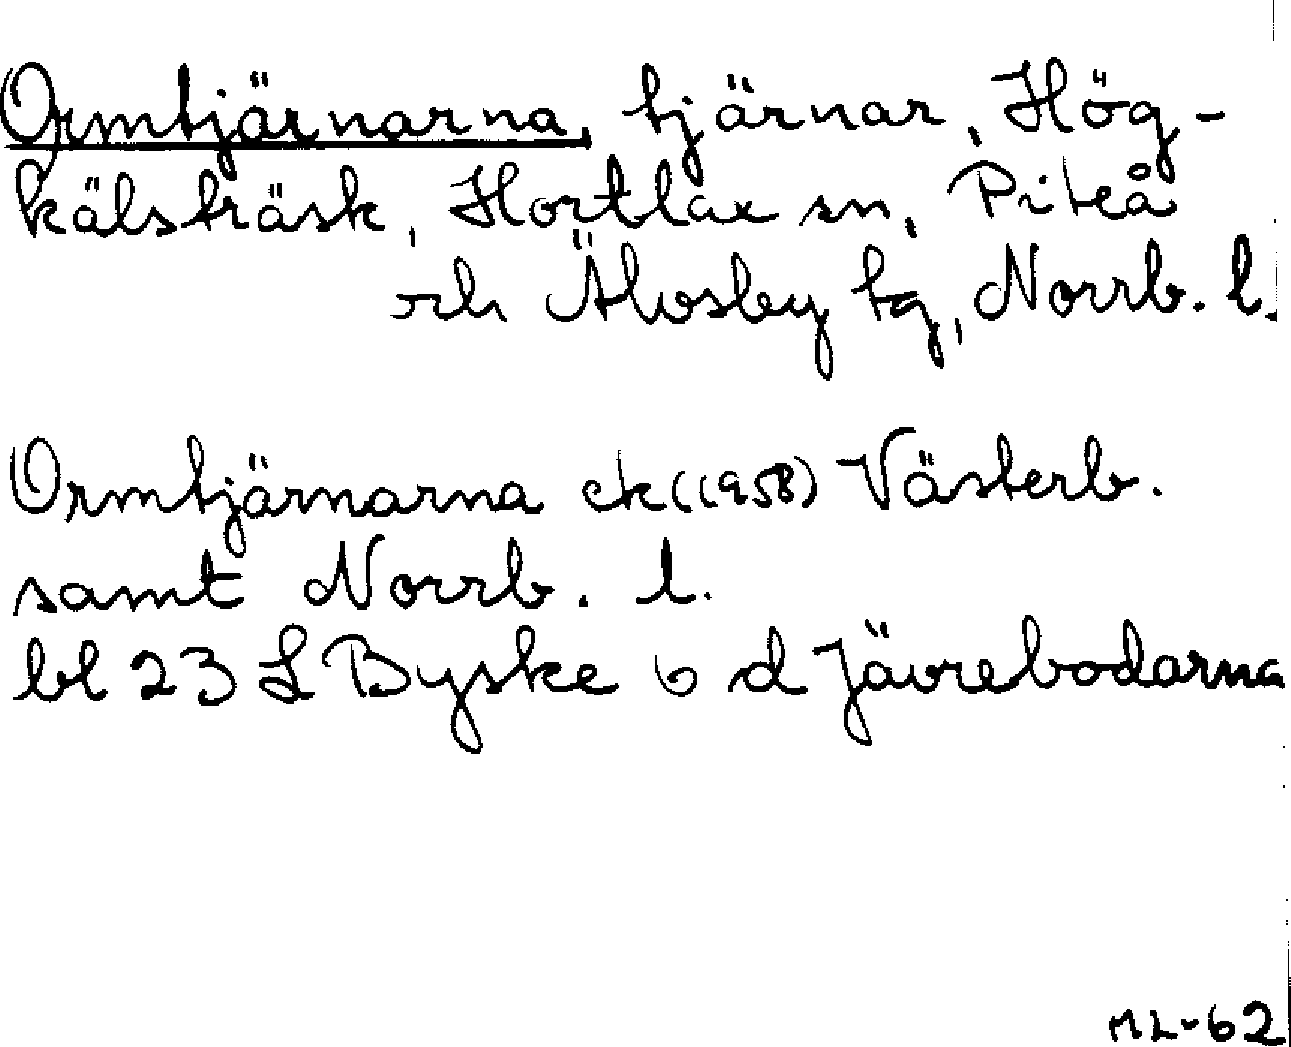 Ormtjärnarna, tjärnar, Hög-
kälsträsk, Hortlax sn, Piteå
och Älvsby tg, Norrb. l.
Ormtjärnarna ek (1958) Västerb.
samt Norrb. l.
bl 23 L Byske 6 d Jävrebodarna
ML-62